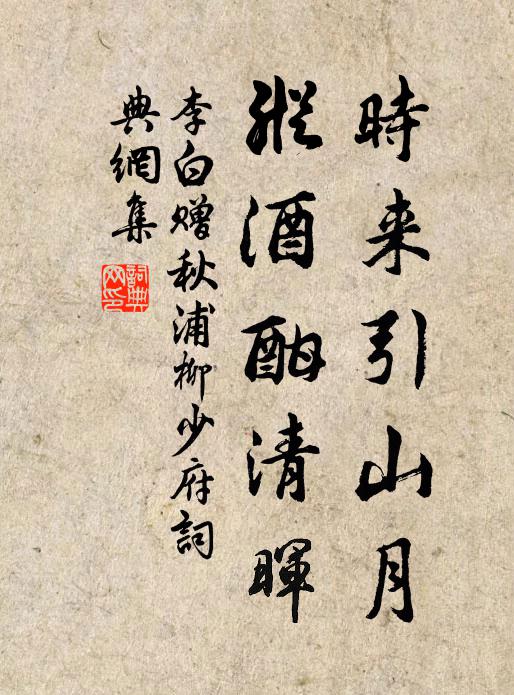 時来引山月
縱酒酣清暉
李白贈秋浦柳少府詞
典網集
詞典網印